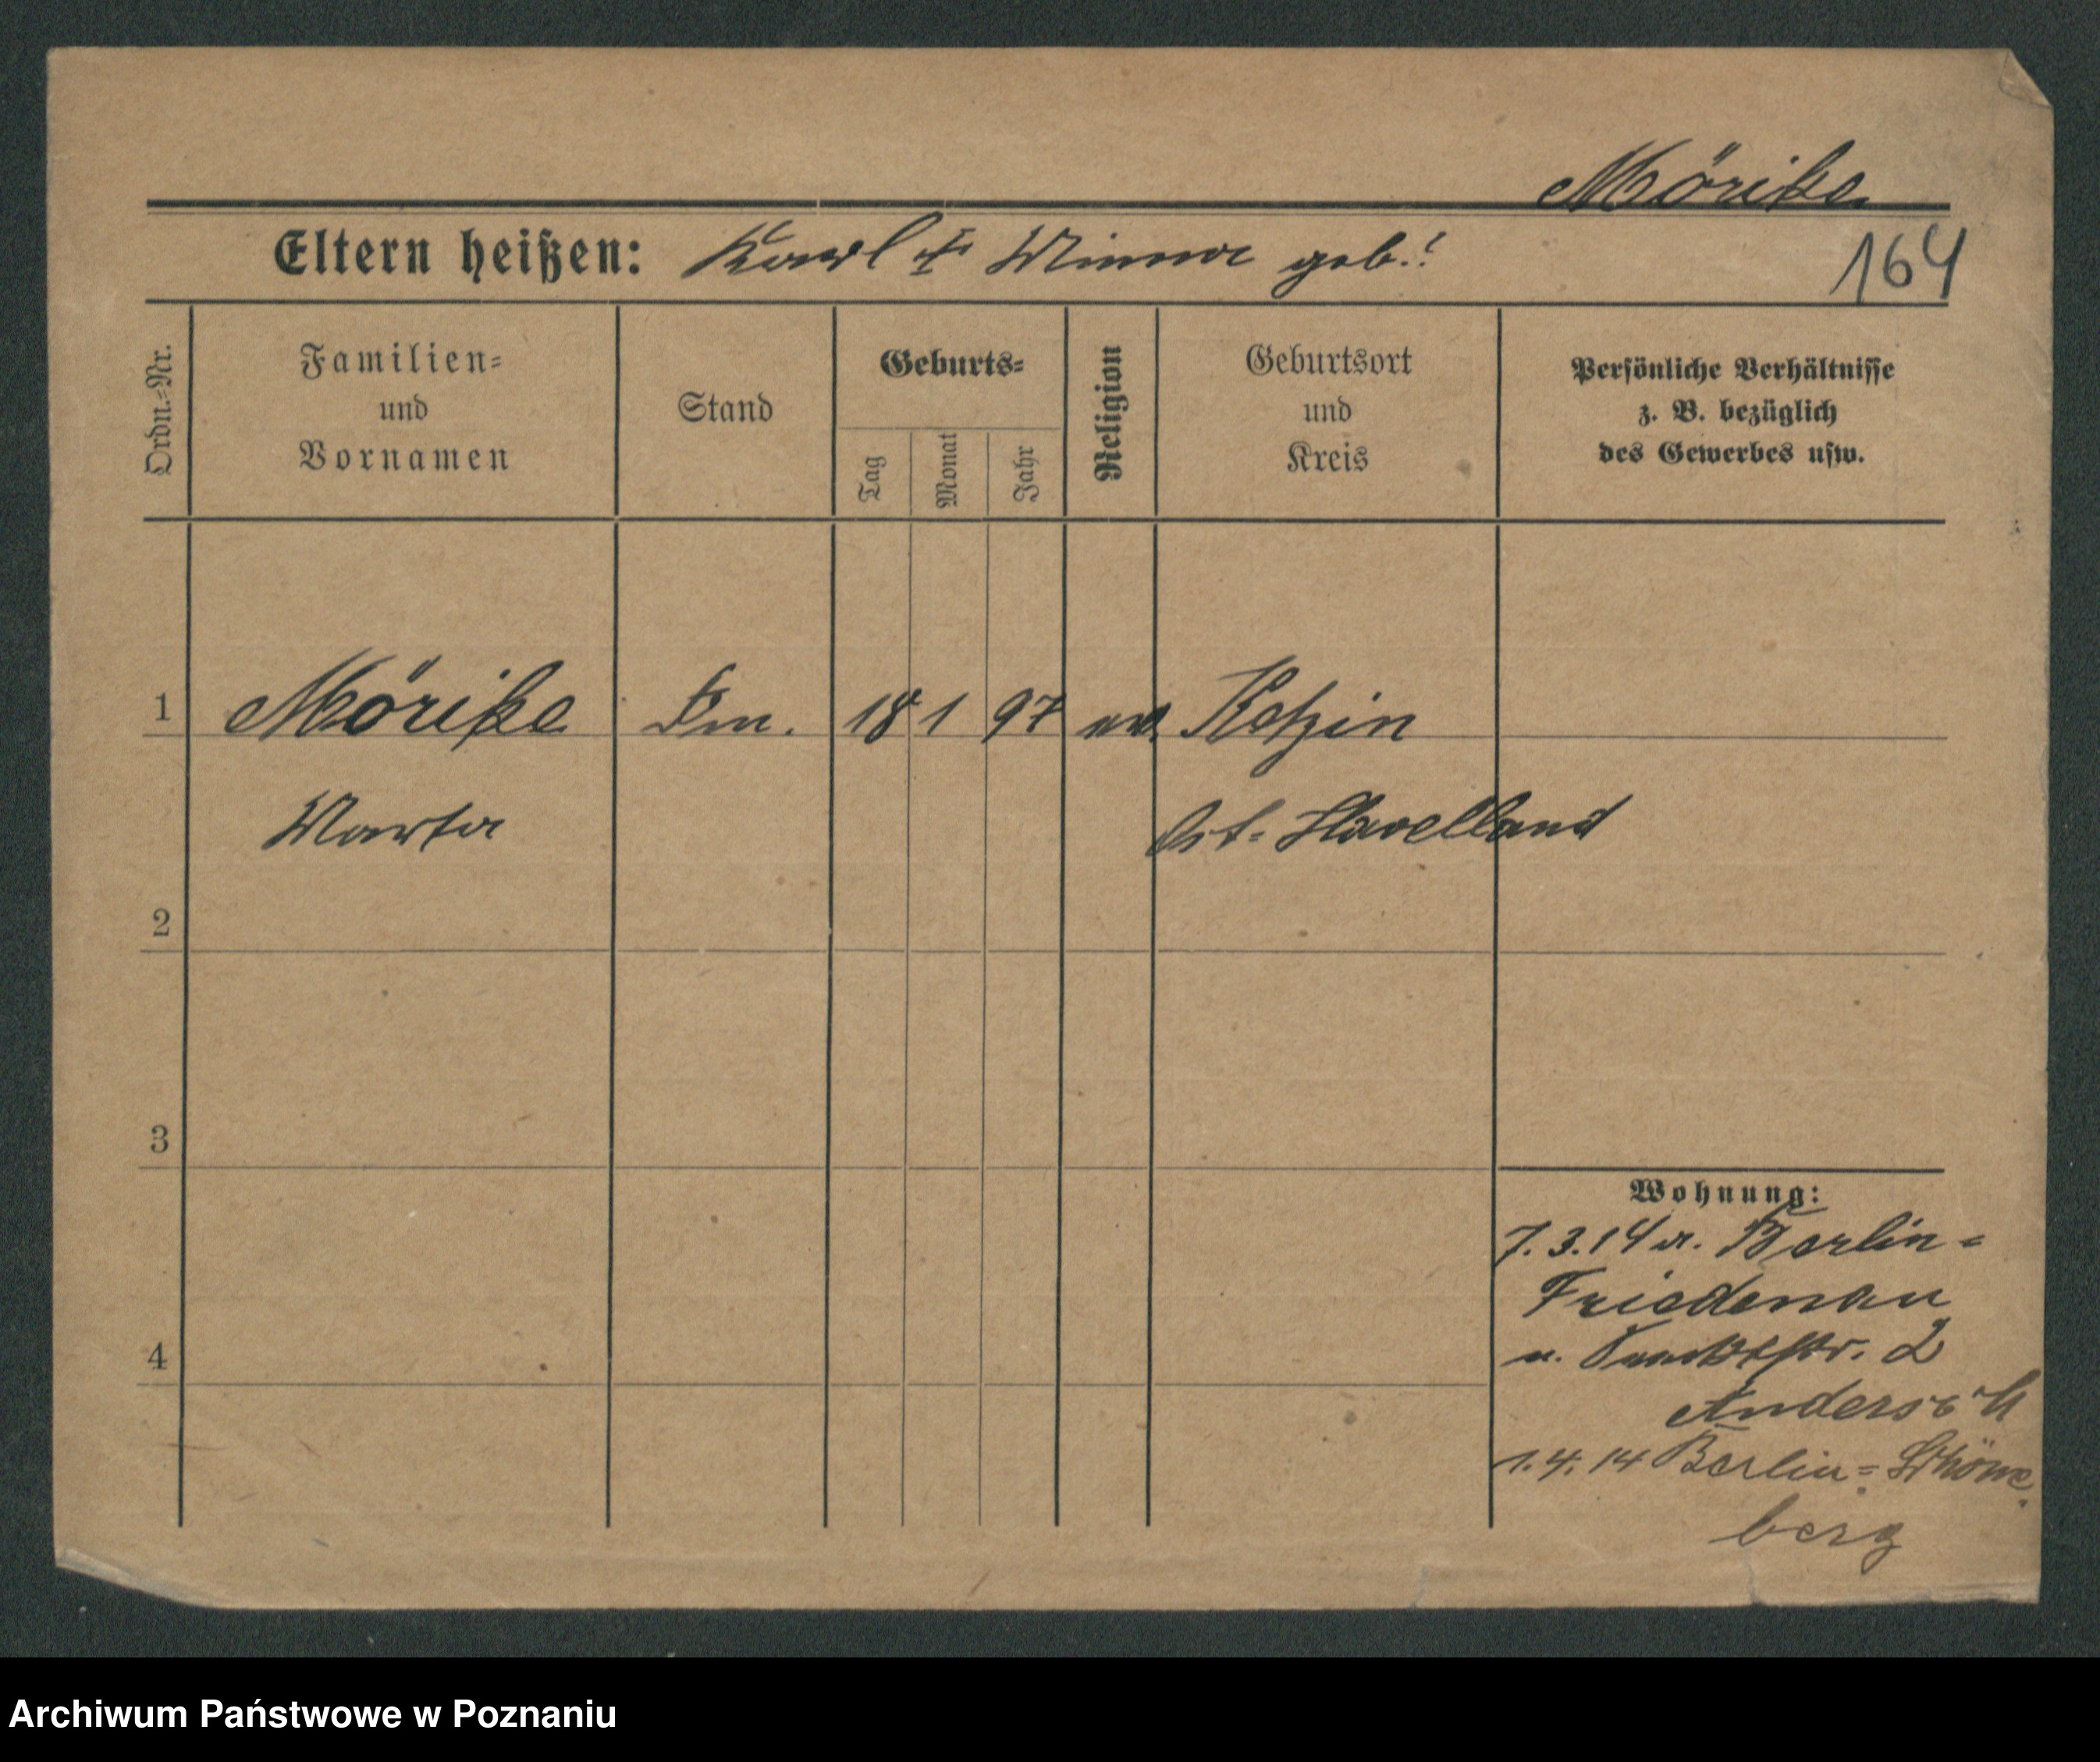 Mörike
Eltern heißen: Karl † Minna geb.?
164
Ordn.=Nr.
Familien=
und
Vornamen
Stand
Geburts=
Tag
Monat
Jahr
Religion
Geburtsort
und
Kreis
Persönliche Verhältnisse
z. B. bezüglich
des Gewerbes usw.
1 Mörike 18 1 97 Ketzin
Marta Ost=Havelland
2
3
4
Wohnung:
7.3.14 a. Berlin=
Friedenau
n. 2
1.4.14 Berlin=Schöne
berg
Archiwum Państwowe w Poznaniu